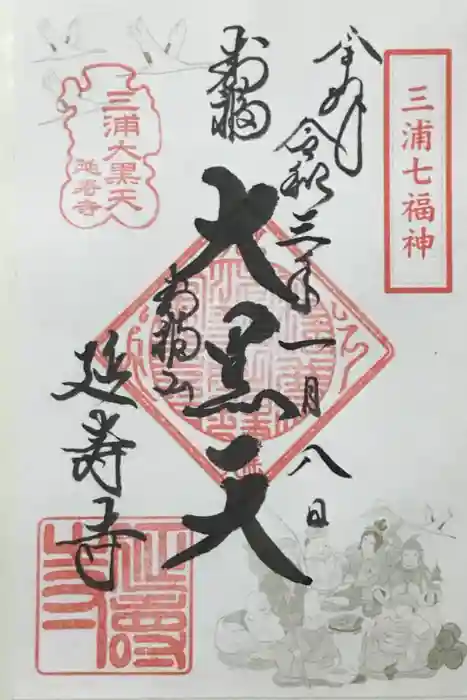 三浦七福神
令和三年一月八日
寿福
大黒天
寿福山
延寿寺
三浦大黒天
延寿寺